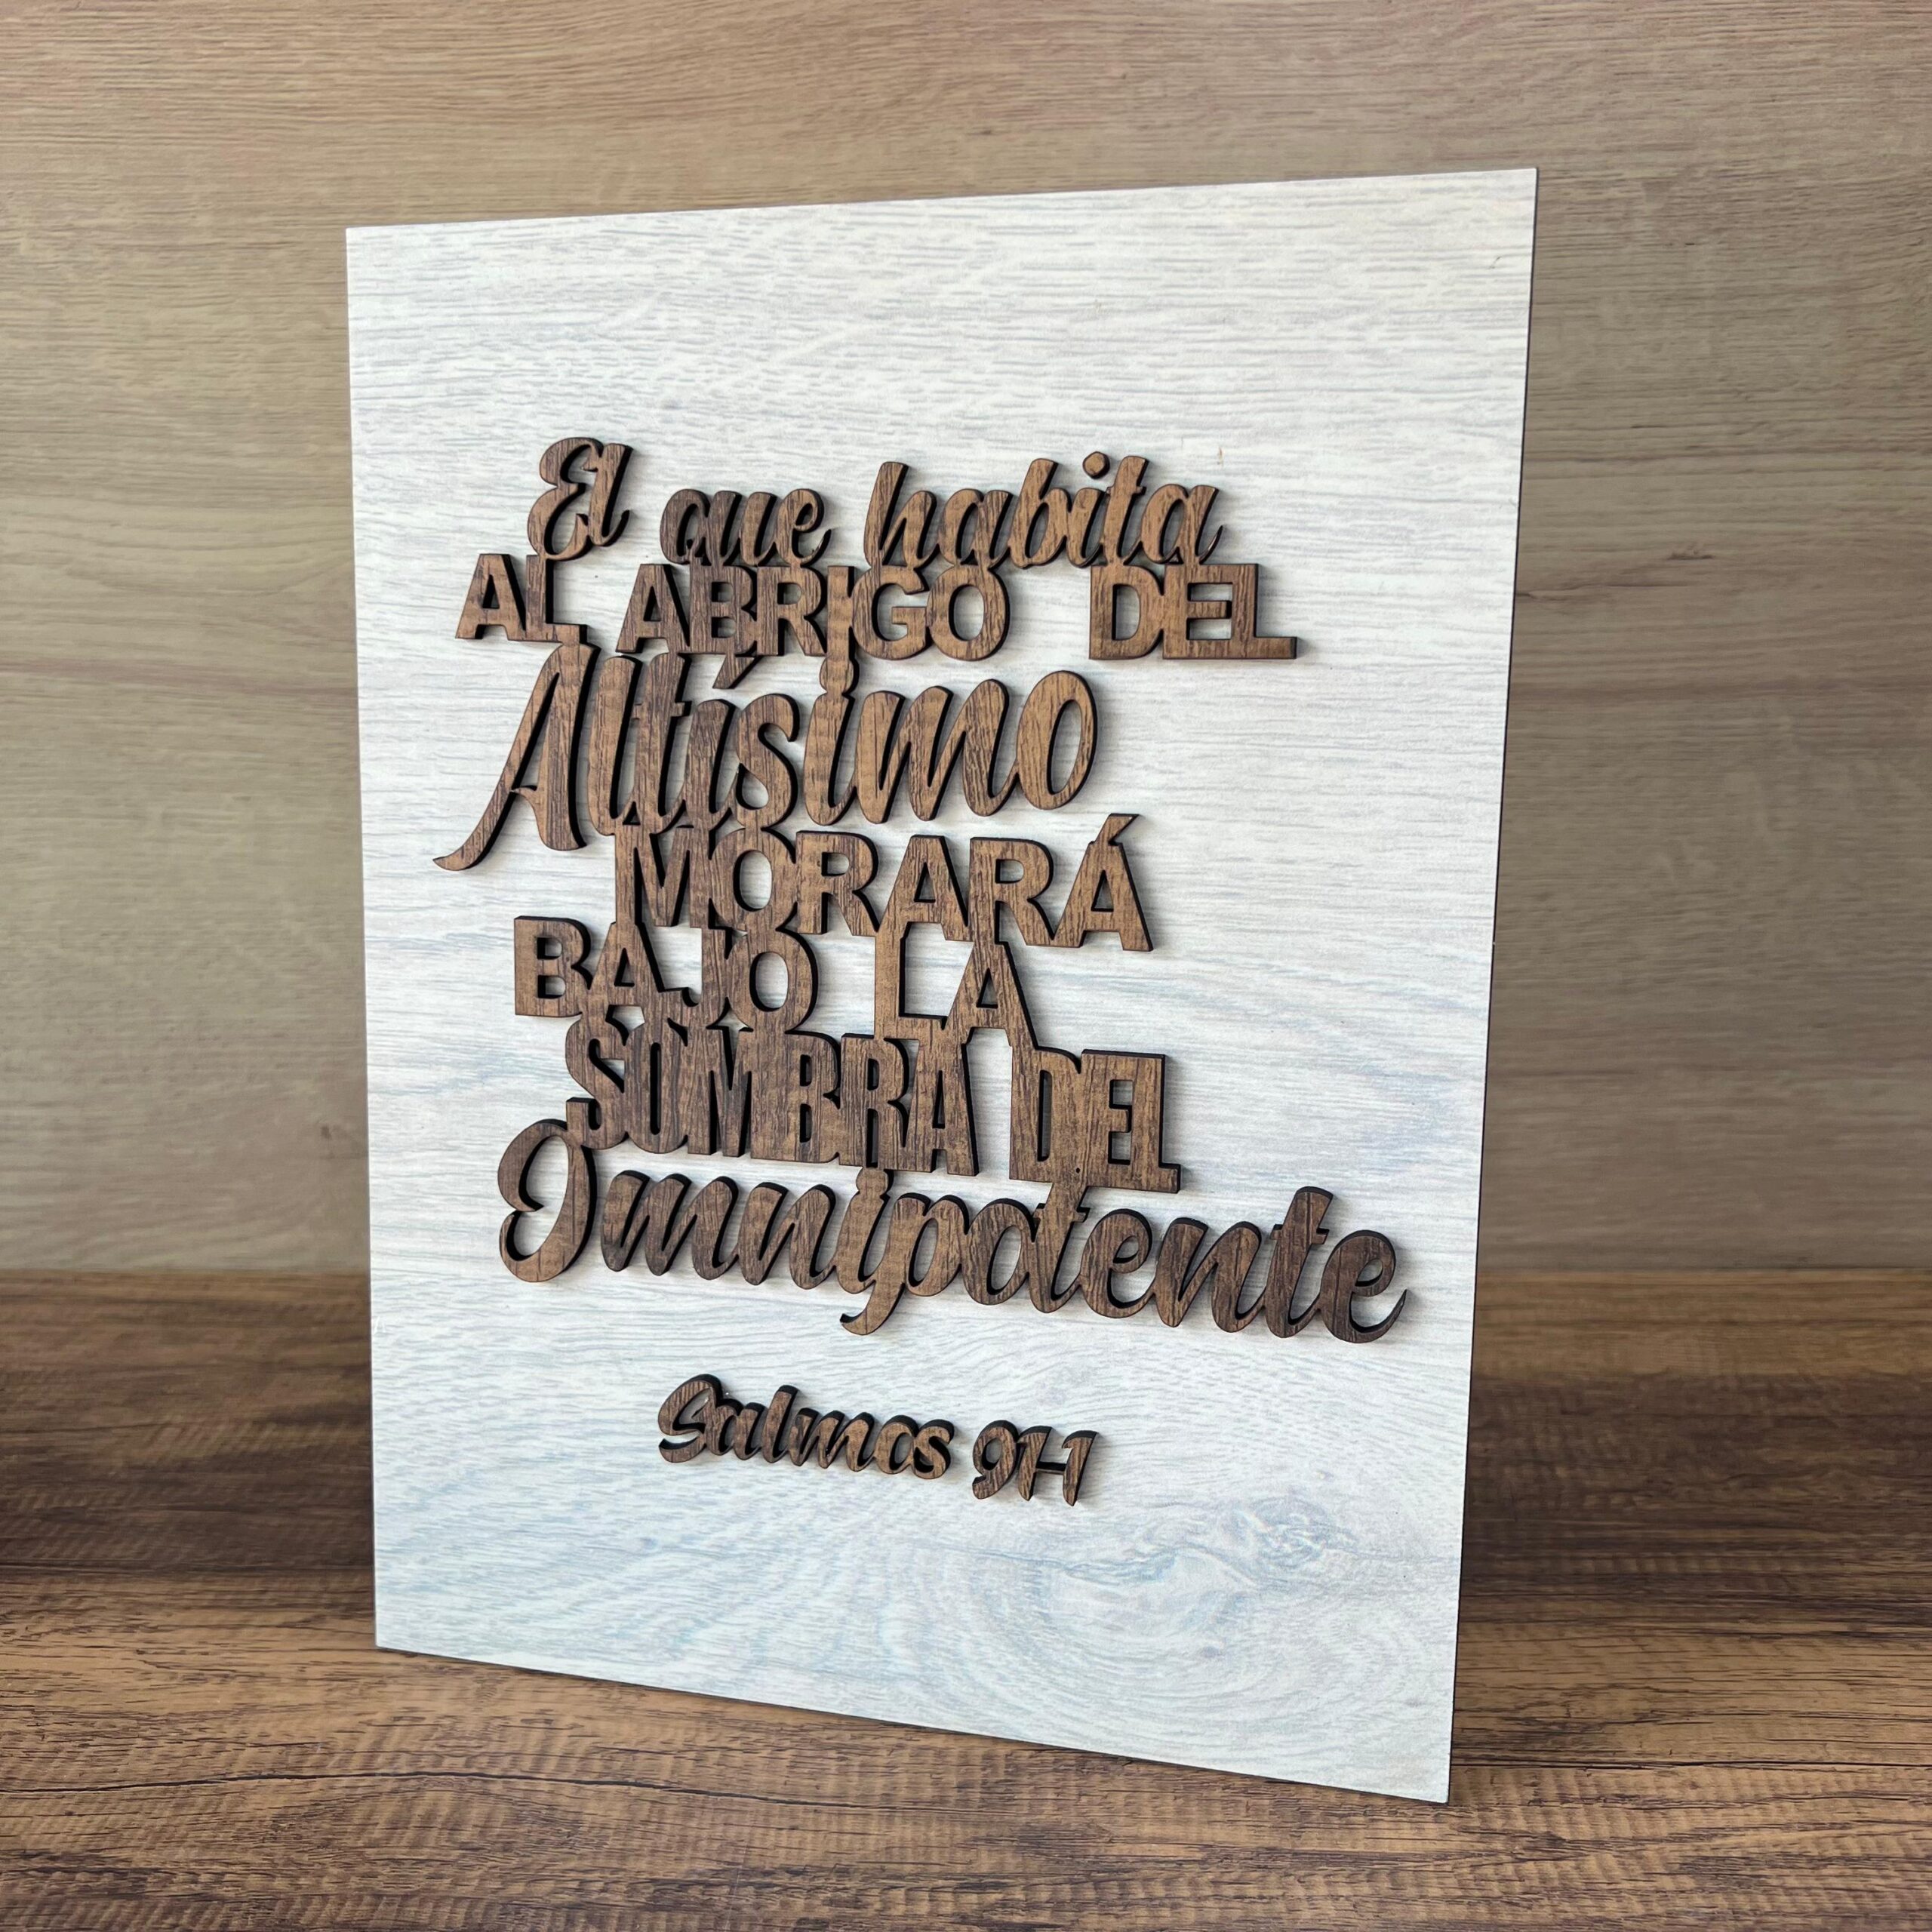 El que habita
AL ABRIGO DEL
Altísimo
MORARÁ
BAJO LA
SOMBRA DEL
Omnipotente
Salmos 91-1